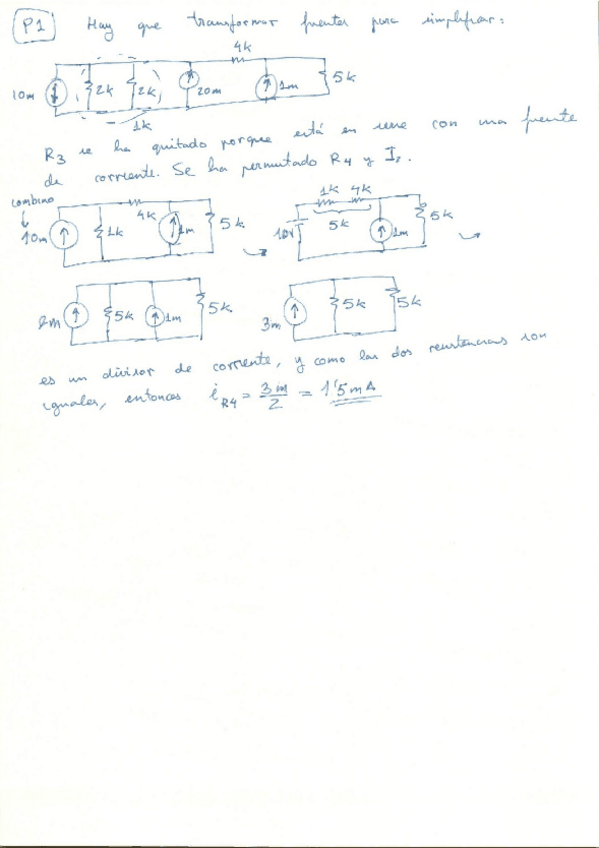 P1 Hay que transformar fuentes para simplificar:
4k
10m 2k 2k 20m 1m 5k
1k
R3 se ha quitado porque está en serie con una fuente
de corriente. Se ha permutado R4 y I
combino
10m 1k 4k 1m 5k
10V 1k 4k 5k 1m 5k
2m 5k 1m 5k
3m 5k 5k
es un divisor de corriente, y como las dos resistencias son
iguales, entonces iR4 = 3m/2 = 1'5mA